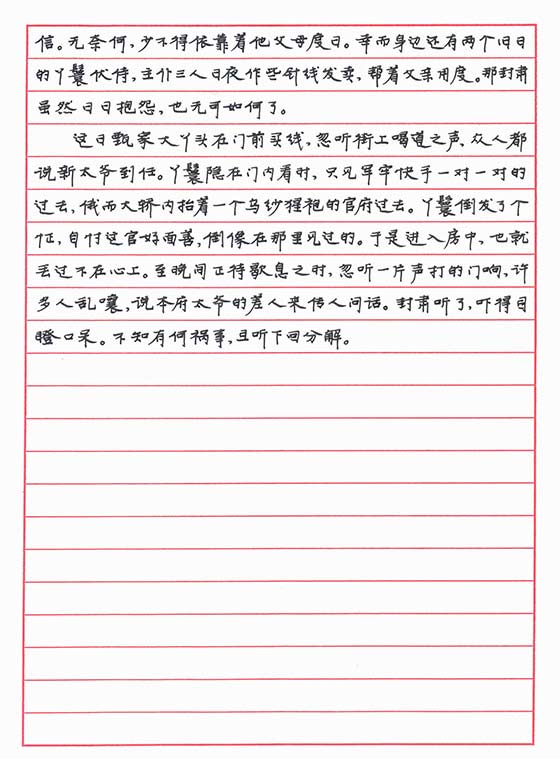 信。无奈何，少不得依靠着他父母度日。幸而身边还有两个旧日
的丫鬟伏侍，主仆三人日夜作些针线发卖，帮着父亲用度。那封肃
虽然日日抱怨，也无可如何了。
这日甄家大丫头在门前买线，忽听街上喝道之声，众人都
说新太爷到任。丫鬟隐在门内看时，只见军牢快手一对一对的
过去，俄而大轿内抬着一个乌纱猩袍的官府过去。丫鬟倒发了个
怔，自忖这官好面善，倒像在那里见过的。于是进入房中，也就
丢过不在心上。至晚间正待歇息之时，忽听一片声打的门响，许
多人乱嚷，说本府太爷的差人来传人问话。封肃听了，吓得目
瞪口呆。不知有何祸事，且听下回分解。